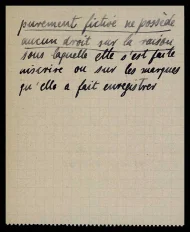 purement fictive ne possède
aucun droit sur la raison
sous laquelle elle s'est faite
inscrire ou sur les marques
qu'elle a fait enregistrer